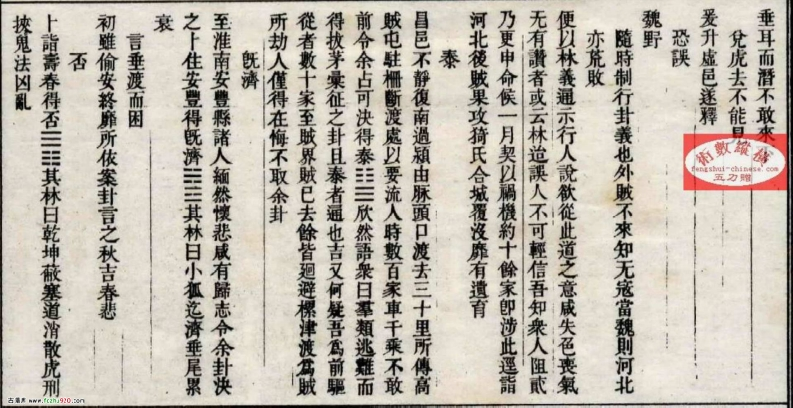 垂耳而潛不敢來
兌虎去不能
爰升虛邑遂釋
恐誤
魏野
隨時制行卦義也外賊不來知无寇當魏則河北
亦荒敗
便以林義通示行人說欲從此道之意咸失色喪氣
无有讚者或云林迨誤人不可輕信吾知衆人阻貳
乃更申命候一月契以禍機約十餘家卽涉此逕詣
河北後賊果攻猗氏合城覆没靡有遺育
泰
昌邑不靜復南過潁由脉頭口渡去三十里所傳高
賊屯駐柵斷渡處以要流人時數百家車千乘不敢
前令余占可決得泰䷊欣然語衆曰羣類逃難而
得拔茅彙征之卦且泰者通也吉又何疑吾爲前驅
從者數十家至賊界賊已去餘皆迴避㯭津渡爲賊
所劫人僅得在悔不取余卦
旣濟
至淮南安豐縣諸人緬然懷悲咸有歸志令余卦決
之卜住安豐得旣濟䷾其林曰小狐迄濟垂尾累
衰
言垂渡而困
初雖偷安終靡所依案卦言之秋吉春悲
否
卜詣壽春得否䷋其林曰乾坤蔽塞道消散虎刑
挾鬼法凶亂
術數縱橫
fengshui-chinese.com
五刀贈
www.fczhu920.com